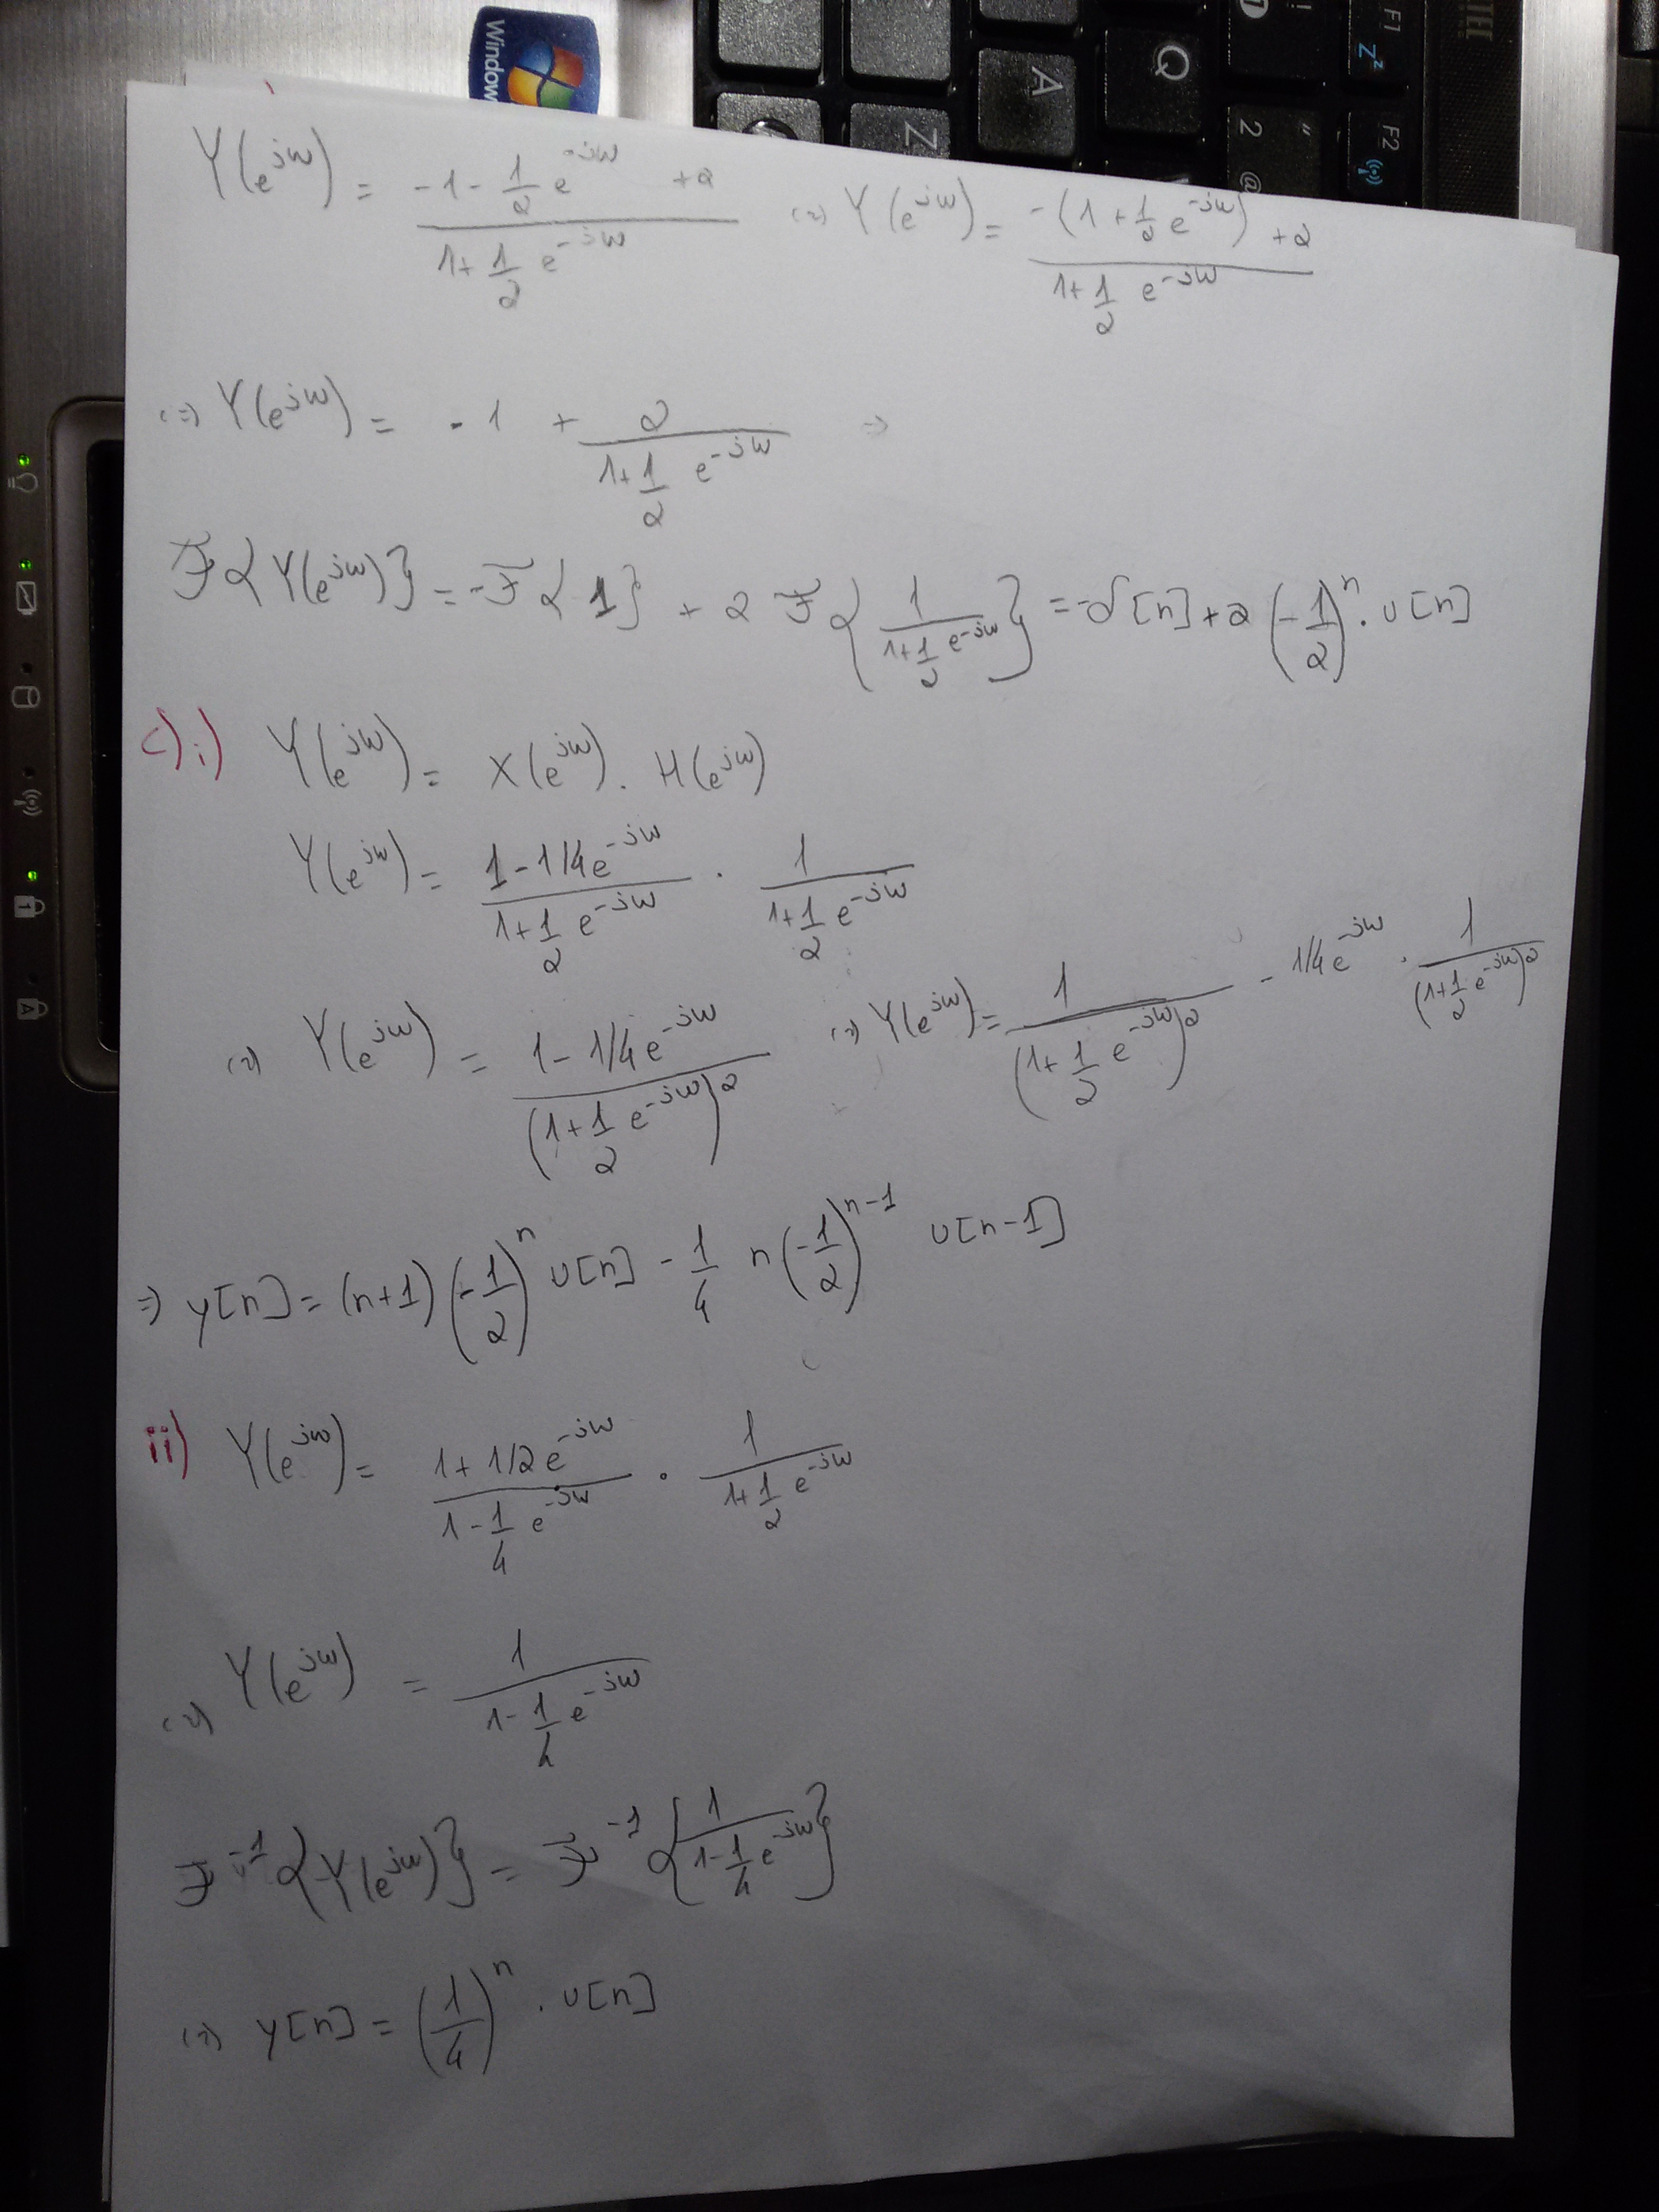 Window
Q
A
Z
F1
F2
2
"
@
!
Zz
Y(e^{jw}) = \frac{-1 - \frac{1}{2} e^{-jw} + 2}{1 + \frac{1}{2} e^{-jw}} (=) Y(e^{jw}) = \frac{-(1 + \frac{1}{2} e^{-jw}) + 2}{1 + \frac{1}{2} e^{-jw}}
(=) Y(e^{jw}) = -1 + \frac{2}{1 + \frac{1}{2} e^{-jw}} =>
F{Y(e^{jw})} = -F{1} + 2 F{\frac{1}{1 + \frac{1}{2} e^{-jw}}} = -δ[n] + 2 (-\frac{1}{2})^n . u[n]
c) i) Y(e^{jw}) = X(e^{jw}) . H(e^{jw})
Y(e^{jw}) = \frac{1 - 1/4 e^{-jw}}{1 + \frac{1}{2} e^{-jw}} . \frac{1}{1 + \frac{1}{2} e^{-jw}}
(=) Y(e^{jw}) = \frac{1 - 1/4 e^{-jw}}{(1 + \frac{1}{2} e^{-jw})^2} (=) Y(e^{jw}) = \frac{1}{(1 + \frac{1}{2} e^{-jw})^2} - 1/4 e^{-jw} . \frac{1}{(1 + \frac{1}{2} e^{-jw})^2}
=) y[n] = (n+1) (-\frac{1}{2})^n u[n] - \frac{1}{4} n (-\frac{1}{2})^{n-1} u[n-1]
ii) Y(e^{jw}) = \frac{1 + 1/2 e^{-jw}}{1 - \frac{1}{4} e^{-jw}} . \frac{1}{1 + \frac{1}{2} e^{-jw}}
(=) Y(e^{jw}) = \frac{1}{1 - \frac{1}{4} e^{-jw}}
F^{-1}{Y(e^{jw})} = F^{-1}{\frac{1}{1 - \frac{1}{4} e^{-jw}}}
(=) y[n] = (\frac{1}{4})^n . u[n]